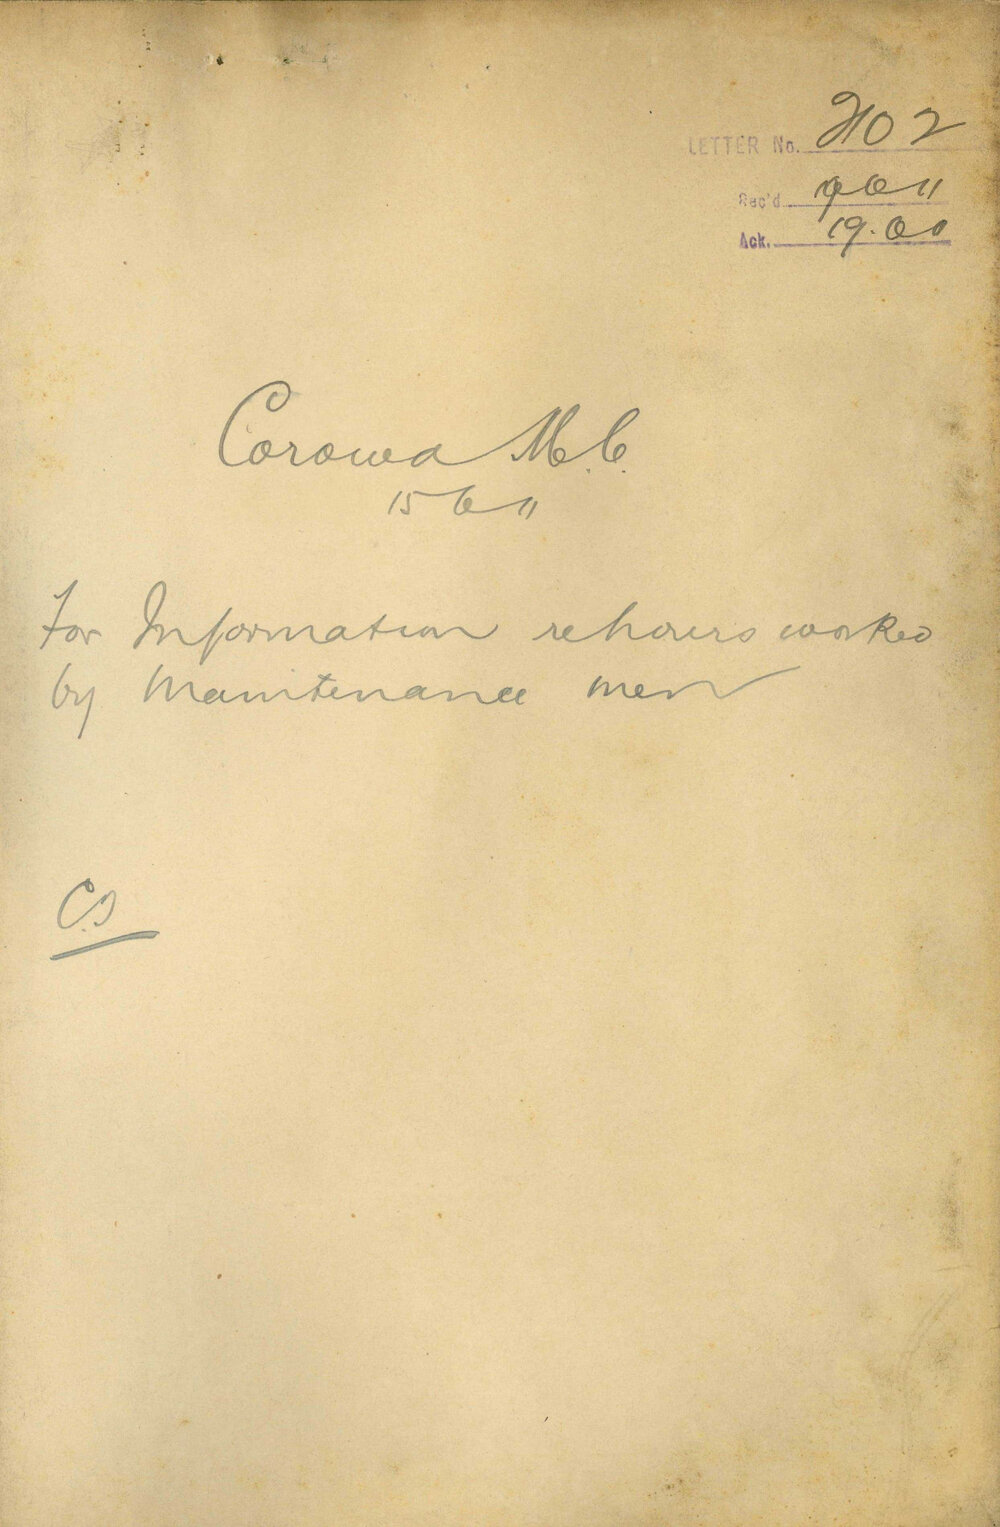 LETTER No. 2102
Rec'd
Ack. 19.
Corowa M.C.
15 6 11
For Information re hours worked
by Maintenance men
C.S